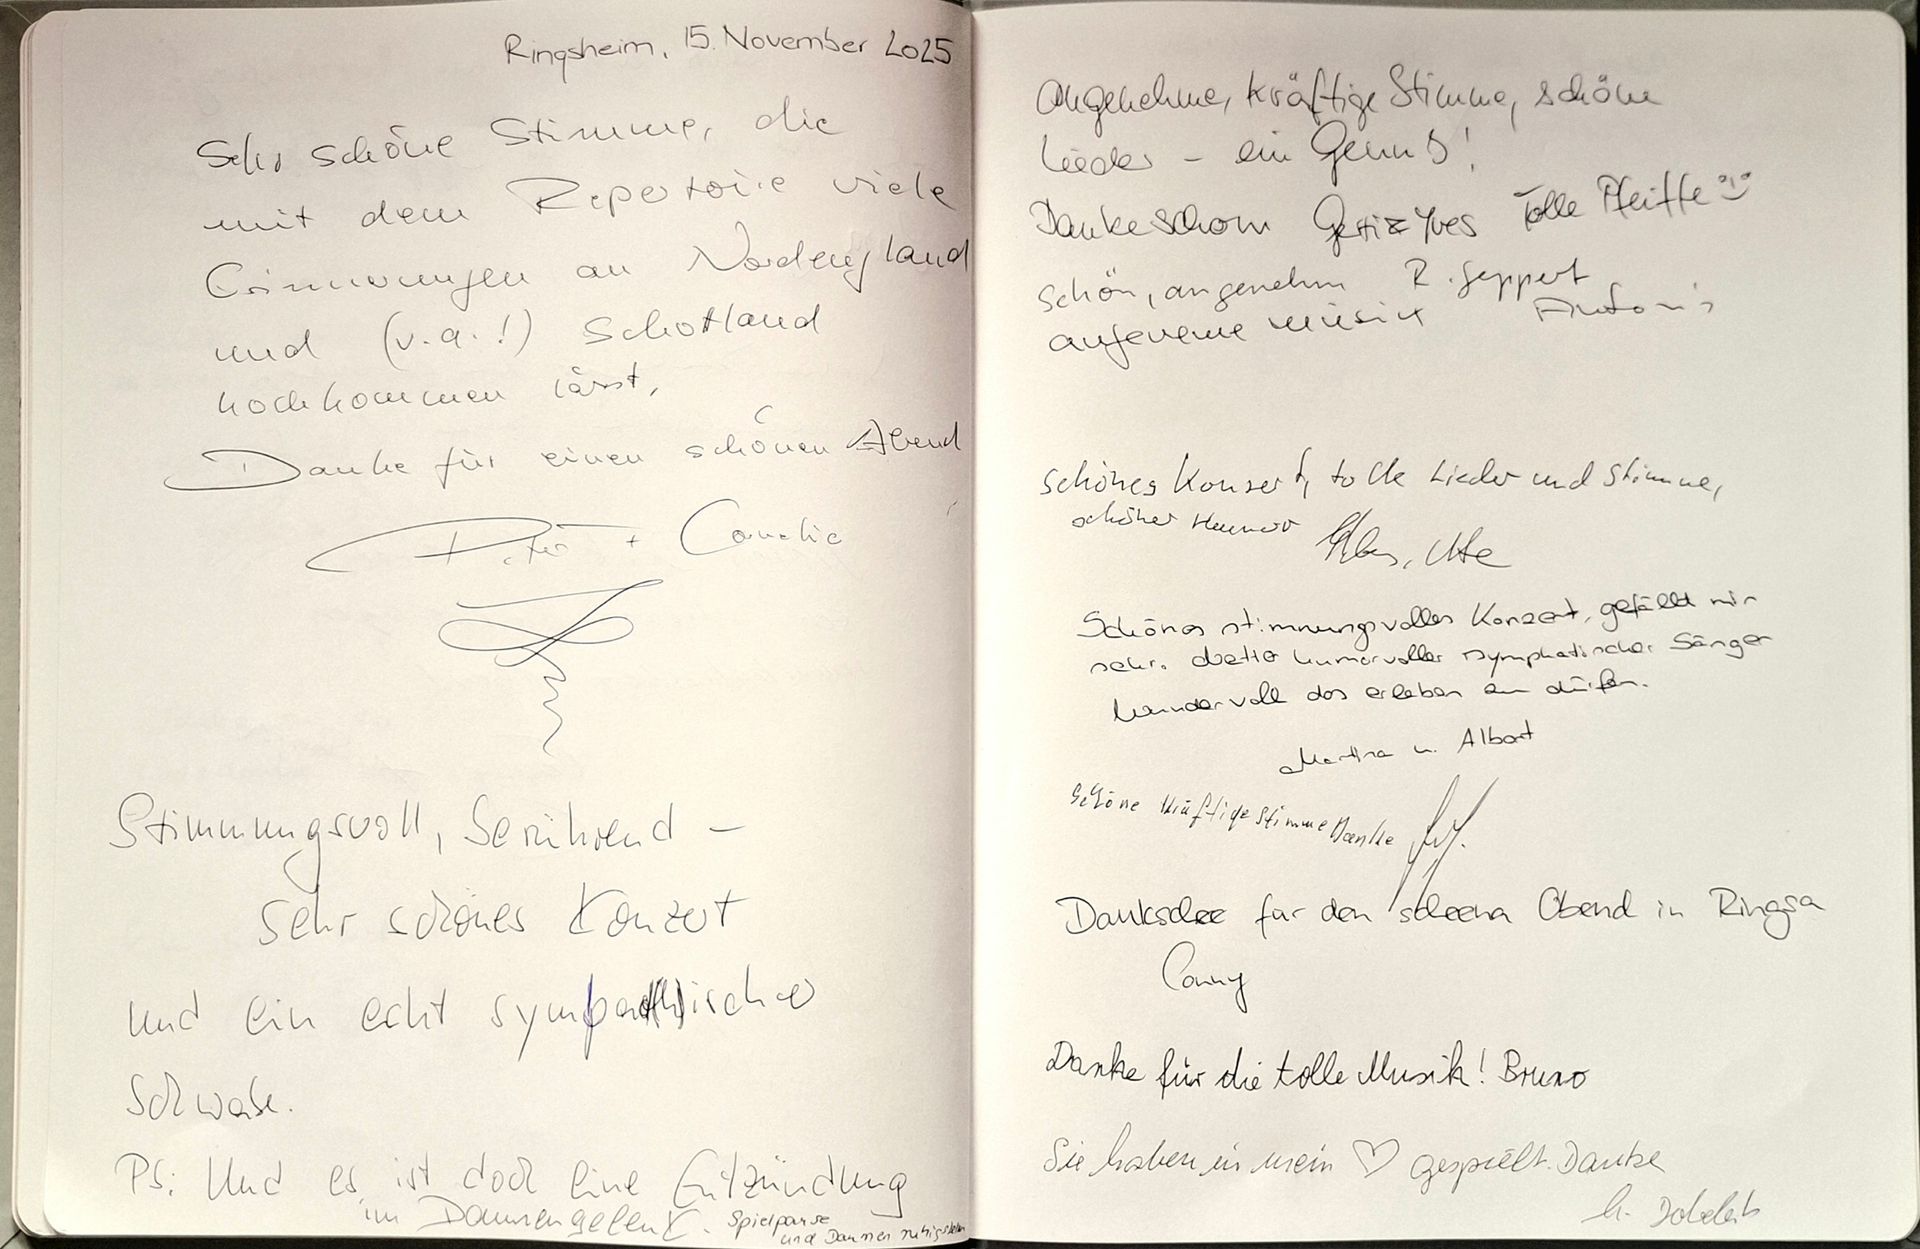 Ringsheim, 15. November 2025
Sehr schöne Stimme, die
mit dem Repertoire viele
Erinnerungen an Nordengland
und (v.a.!) Schottland
hochkommen lässt,
Danke für einen schönen Abend
Peter + Cornelia
Stimmungsvoll, berührend –
sehr schönes Konzert
und ein echt sympathischer
Schwabe.
PS: Und es ist doch eine Entzündung
im Daumengelenk. Spielpause
und Daumen
Angenehme, kräftige Stimme, schöne
Lieder – ein Genuß!
Dankeschön Yves Tolle Pfeiffe
schön, angenehm R. Geppert
angeneme Musik
Schönes Konzert, tolle Lieder und Stimme,
schöner Humor Ute
Schönes stimmungsvolles Konzert, gefällt mir
sehr. humorvoller symphatischer Sänger
Wundervoll das erleben zu dürfen.
Martina u. Albert
Schöne kräftige Stimme Danke
Dankschee für den scheena Obend in Ringsa
Conny
Danke für die tolle Musik! Bruno
Sie haben in mein ♡ gespielt. Danke